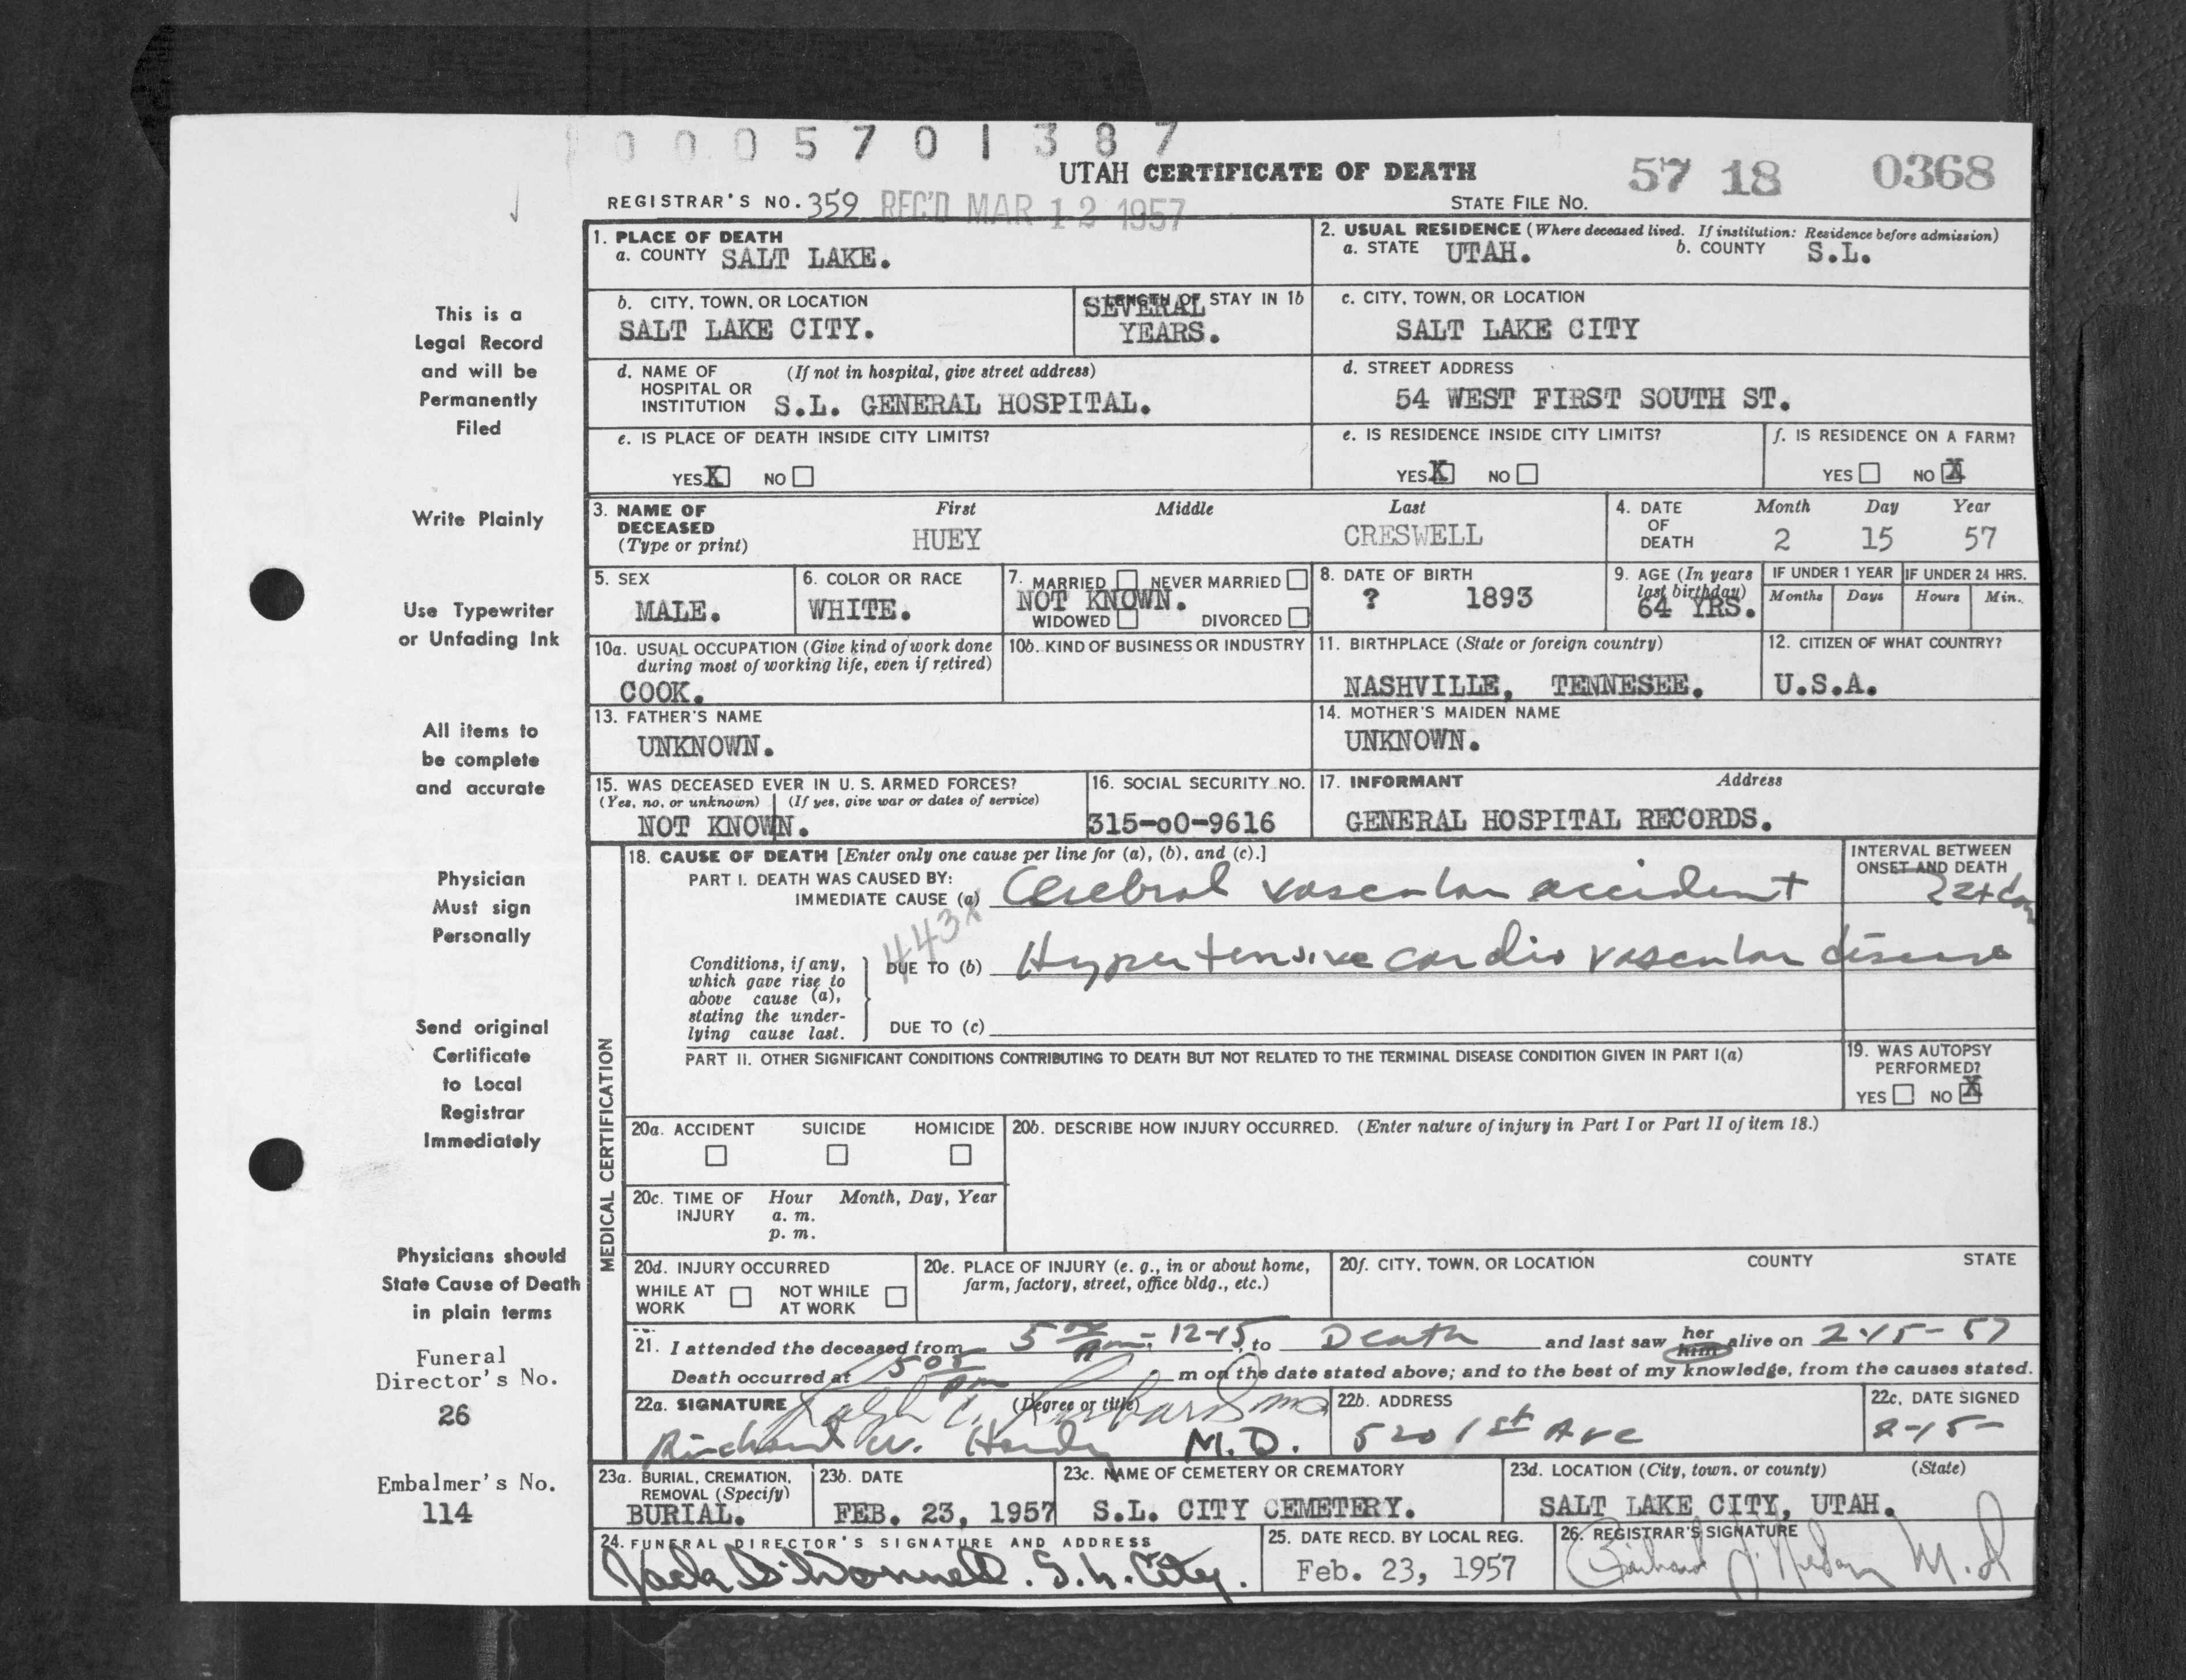 0005701387
UTAH CERTIFICATE OF DEATH
57 18 0368
REGISTRAR'S NO. 359 REC'D MAR 12 1957 STATE FILE NO.
1. PLACE OF DEATH
a. COUNTY SALT LAKE.
2. USUAL RESIDENCE (Where deceased lived. If institution: Residence before admission)
a. STATE UTAH. b. COUNTY S.L.
b. CITY, TOWN, OR LOCATION
SALT LAKE CITY.
LENGTH OF STAY IN 1b
SEVERAL
YEARS.
c. CITY, TOWN, OR LOCATION
SALT LAKE CITY
d. NAME OF HOSPITAL OR INSTITUTION (If not in hospital, give street address)
S.L. GENERAL HOSPITAL.
d. STREET ADDRESS
54 WEST FIRST SOUTH ST.
e. IS PLACE OF DEATH INSIDE CITY LIMITS?
YES X NO
e. IS RESIDENCE INSIDE CITY LIMITS?
YES X NO
f. IS RESIDENCE ON A FARM?
YES NO X
3. NAME OF DECEASED (Type or print)
First Middle Last
HUEY CRESWELL
4. DATE OF DEATH
Month Day Year
2 15 57
5. SEX
MALE.
6. COLOR OR RACE
WHITE.
7. MARRIED NEVER MARRIED
NOT KNOWN.
WIDOWED DIVORCED
8. DATE OF BIRTH
? 1893
9. AGE (In years last birthday)
64 YRS.
IF UNDER 1 YEAR
Months Days
IF UNDER 24 HRS.
Hours Min.
10a. USUAL OCCUPATION (Give kind of work done during most of working life, even if retired)
COOK.
10b. KIND OF BUSINESS OR INDUSTRY
11. BIRTHPLACE (State or foreign country)
NASHVILLE, TENNESEE.
12. CITIZEN OF WHAT COUNTRY?
U.S.A.
13. FATHER'S NAME
UNKNOWN.
14. MOTHER'S MAIDEN NAME
UNKNOWN.
15. WAS DECEASED EVER IN U. S. ARMED FORCES?
(Yes, no, or unknown) (If yes, give war or dates of service)
NOT KNOWN.
16. SOCIAL SECURITY NO.
315-o0-9616
17. INFORMANT Address
GENERAL HOSPITAL RECORDS.
MEDICAL CERTIFICATION
18. CAUSE OF DEATH [Enter only one cause per line for (a), (b), and (c).]
PART I. DEATH WAS CAUSED BY:
IMMEDIATE CAUSE (a) Cerebral vascular accident
INTERVAL BETWEEN ONSET AND DEATH
443X
Conditions, if any, which gave rise to above cause (a), stating the underlying cause last.
DUE TO (b) Hypertensive cardio vascular disease
DUE TO (c)
PART II. OTHER SIGNIFICANT CONDITIONS CONTRIBUTING TO DEATH BUT NOT RELATED TO THE TERMINAL DISEASE CONDITION GIVEN IN PART I(a)
19. WAS AUTOPSY PERFORMED?
YES NO X
20a. ACCIDENT SUICIDE HOMICIDE
20b. DESCRIBE HOW INJURY OCCURRED. (Enter nature of injury in Part I or Part II of item 18.)
20c. TIME OF INJURY Hour Month, Day, Year
a. m.
p. m.
20d. INJURY OCCURRED
WHILE AT WORK NOT WHILE AT WORK
20e. PLACE OF INJURY (e. g., in or about home, farm, factory, street, office bldg., etc.)
20f. CITY, TOWN, OR LOCATION COUNTY STATE
21. I attended the deceased from to Death and last saw her him alive on 2-15-57
Death occurred at 5 05 pm m on the date stated above; and to the best of my knowledge, from the causes stated.
22a. SIGNATURE (Degree or title)
Ralph C. Richards MD
Richard W. Hardy M.D.
22b. ADDRESS
520 1st Ave
22c. DATE SIGNED
2-15-
23a. BURIAL, CREMATION, REMOVAL (Specify)
BURIAL.
23b. DATE
FEB. 23, 1957
23c. NAME OF CEMETERY OR CREMATORY
S.L. CITY CEMETERY.
23d. LOCATION (City, town, or county) (State)
SALT LAKE CITY, UTAH.
24. FUNERAL DIRECTOR'S SIGNATURE AND ADDRESS
Jack O'Donnell. S.L. City.
25. DATE RECD. BY LOCAL REG.
Feb. 23, 1957
26. REGISTRAR'S SIGNATURE
M.D
This is a
Legal Record
and will be
Permanently
Filed
Write Plainly
Use Typewriter
or Unfading Ink
All items to
be complete
and accurate
Physician
Must sign
Personally
Send original
Certificate
to Local
Registrar
Immediately
Physicians should
State Cause of Death
in plain terms
Funeral
Director's No.
26
Embalmer's No.
114